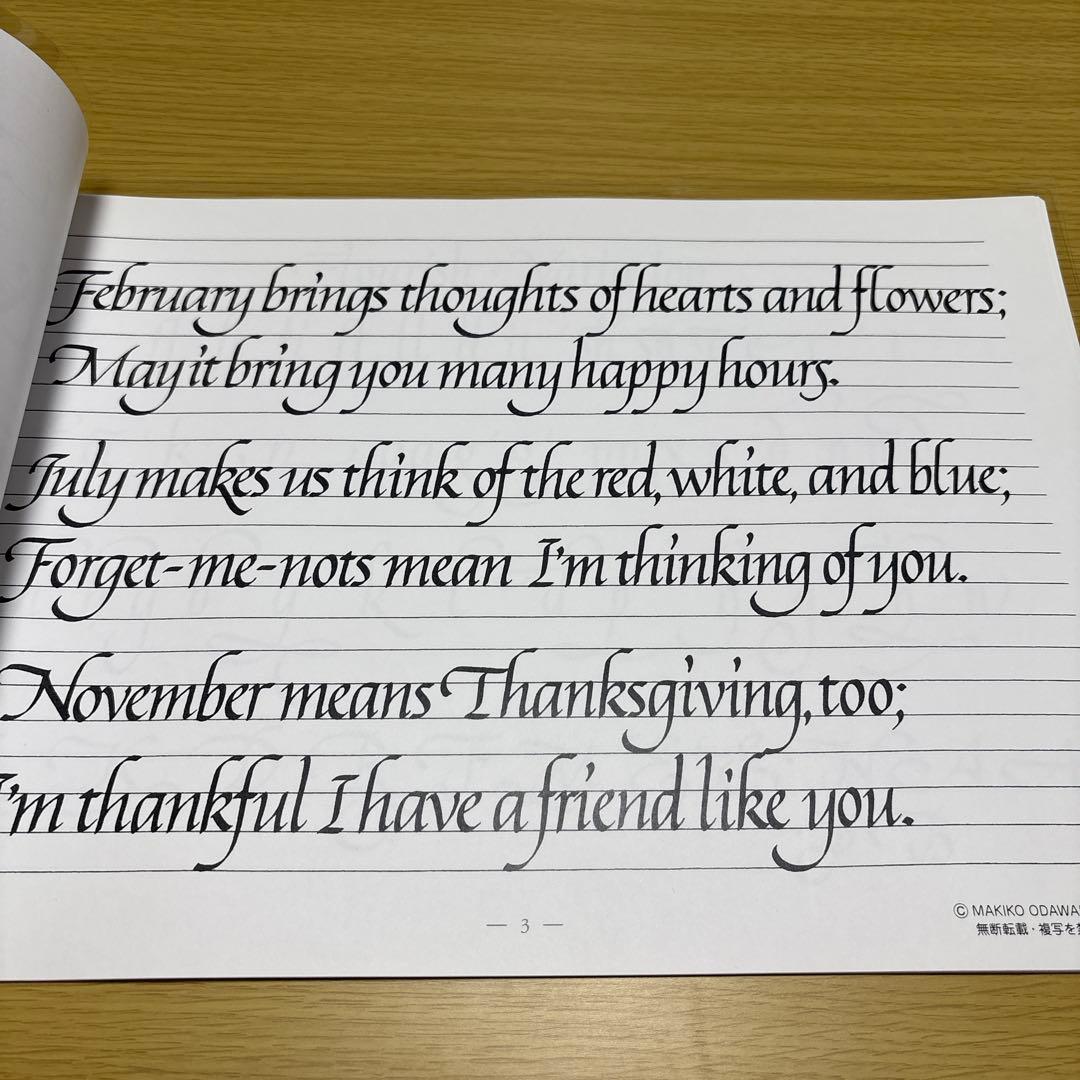 February brings thoughts of hearts and flowers;
May it bring you many happy hours.
July makes us think of the red, white, and blue;
Forget-me-nots mean I'm thinking of you.
November means Thanksgiving, too;
I'm thankful I have a friend like you.
— 3 —
© MAKIKO
無断転載・複写を